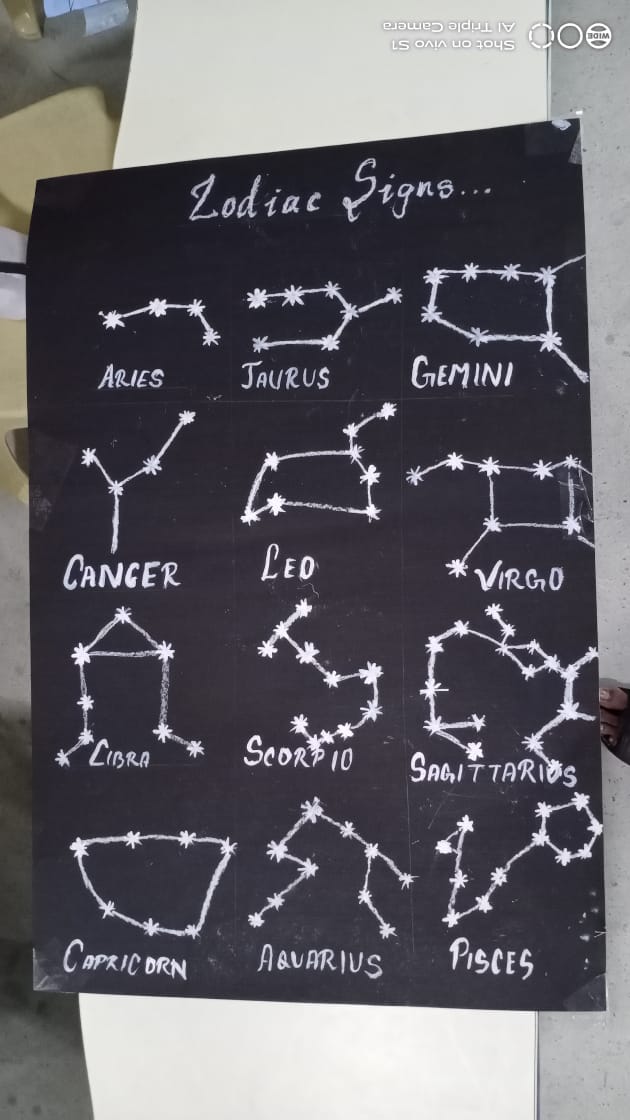 WIDE
Shot on vivo S1
AI Triple Camera
Zodiac Signs...
ARIES
TAURUS
GEMINI
CANCER
LEO
VIRGO
LIBRA
SCORPIO
SAGITTARIUS
CAPRICORN
AQUARIUS
PISCES